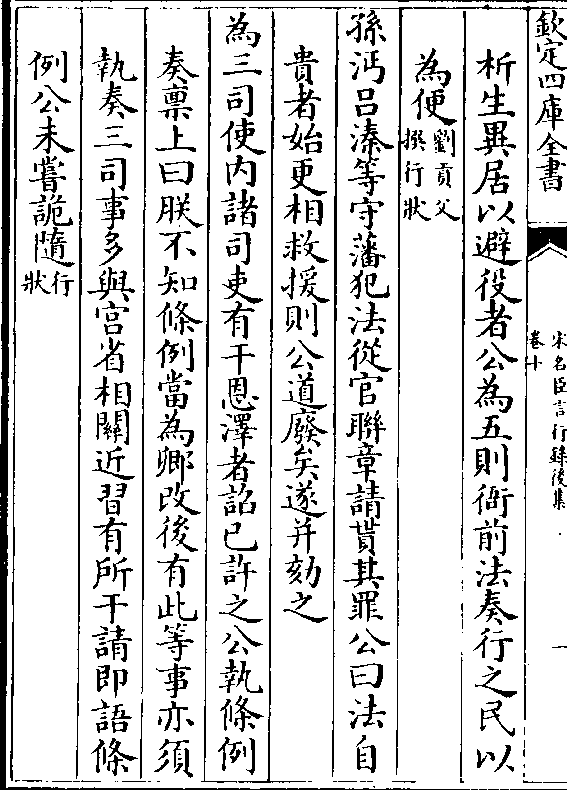 欽定四庫全書
宋名臣言行録後集
卷十
一
析生異居以避役者公為五則衙前法奏行之民以
為便劉貢父撰行狀
孫沔吕溱等守藩犯法從官聯章請貰其罪公曰法自
貴者始更相救援則公道廢矣遂并劾之
為三司使内諸司吏有干恩澤者詔已許之公執條例
奏禀上曰朕不知條例當為卿改後有此等事亦須
執奏三司事多與宫省相關近習有所干請即語條
例公未嘗詭隨行狀